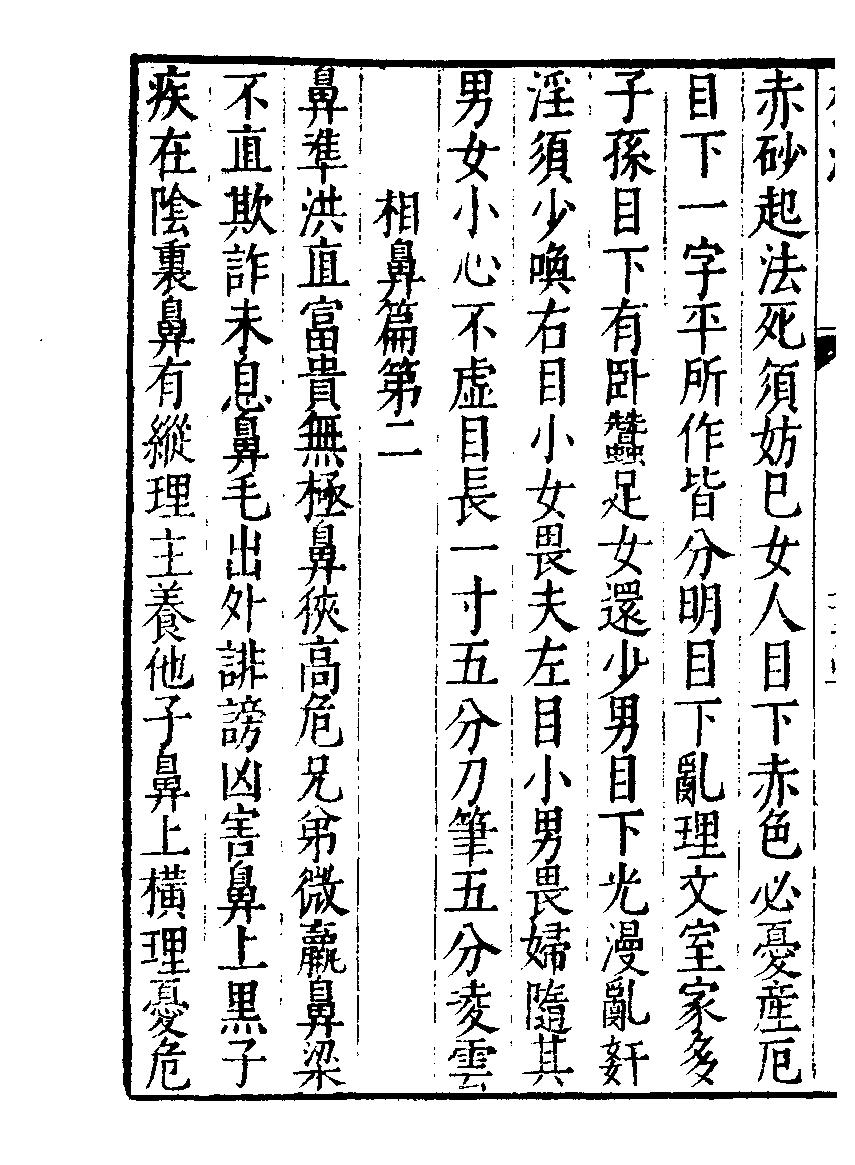 赤砂起法死須妨巳女人目下赤色必憂産厄
目下一字平所作皆分明目下亂理文室家多
子孫目下有卧蠶足女還少男目下光漫亂姧
淫須少喚右目小女畏夫左目小男畏婦隨其
男女小心不虚目長一寸五分刀筆五分凌雲
相鼻篇第二
鼻準洪直富貴無極鼻狹高危兄弟微羸鼻梁
不直欺詐未息鼻毛出外誹謗凶害鼻上黒子
疾在陰裏鼻有縱理主養他子鼻上横理憂危